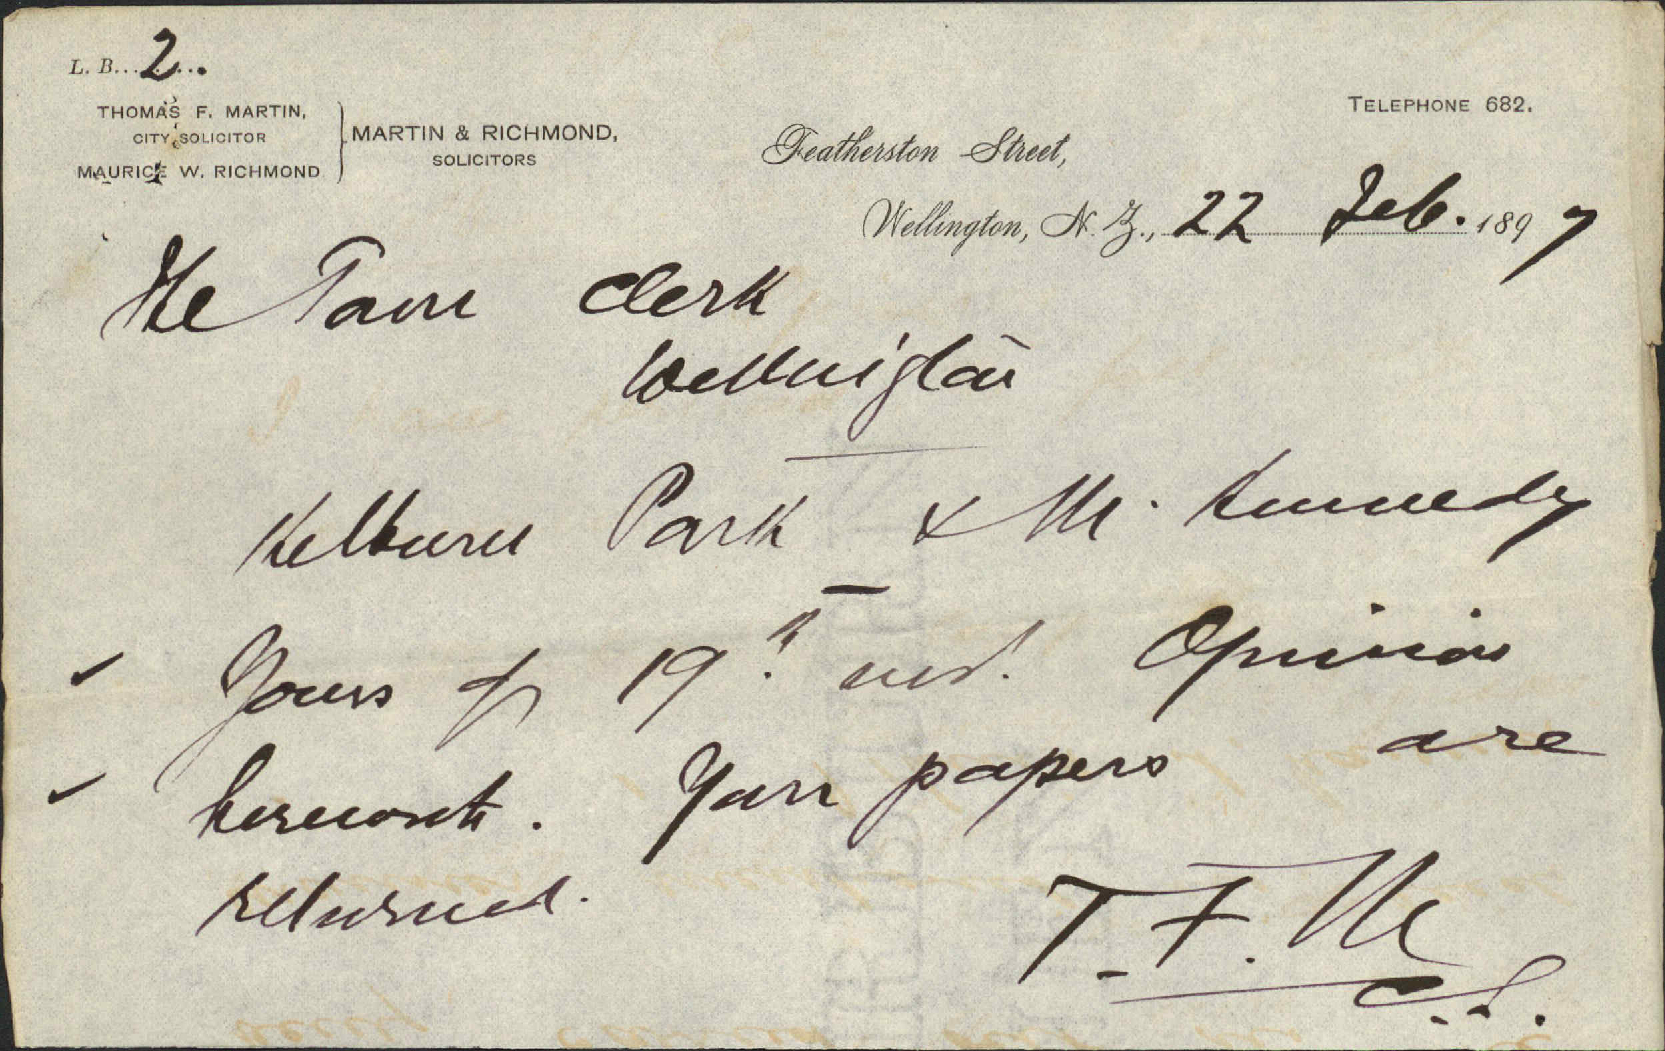 L. B. 2
TELEPHONE 682.
THOMAS F. MARTIN,
CITY SOLICITOR
MAURICE W. RICHMOND
MARTIN & RICHMOND,
SOLICITORS
Featherston Street,
Wellington, N.Z., 22 Feb. 1897
The Town Clerk
Wellington
Kelburn Park & Mr. Kennedy
Yours of 19th inst. Opinion
herewith. Your papers are
returned.
T. F. M
C.S.